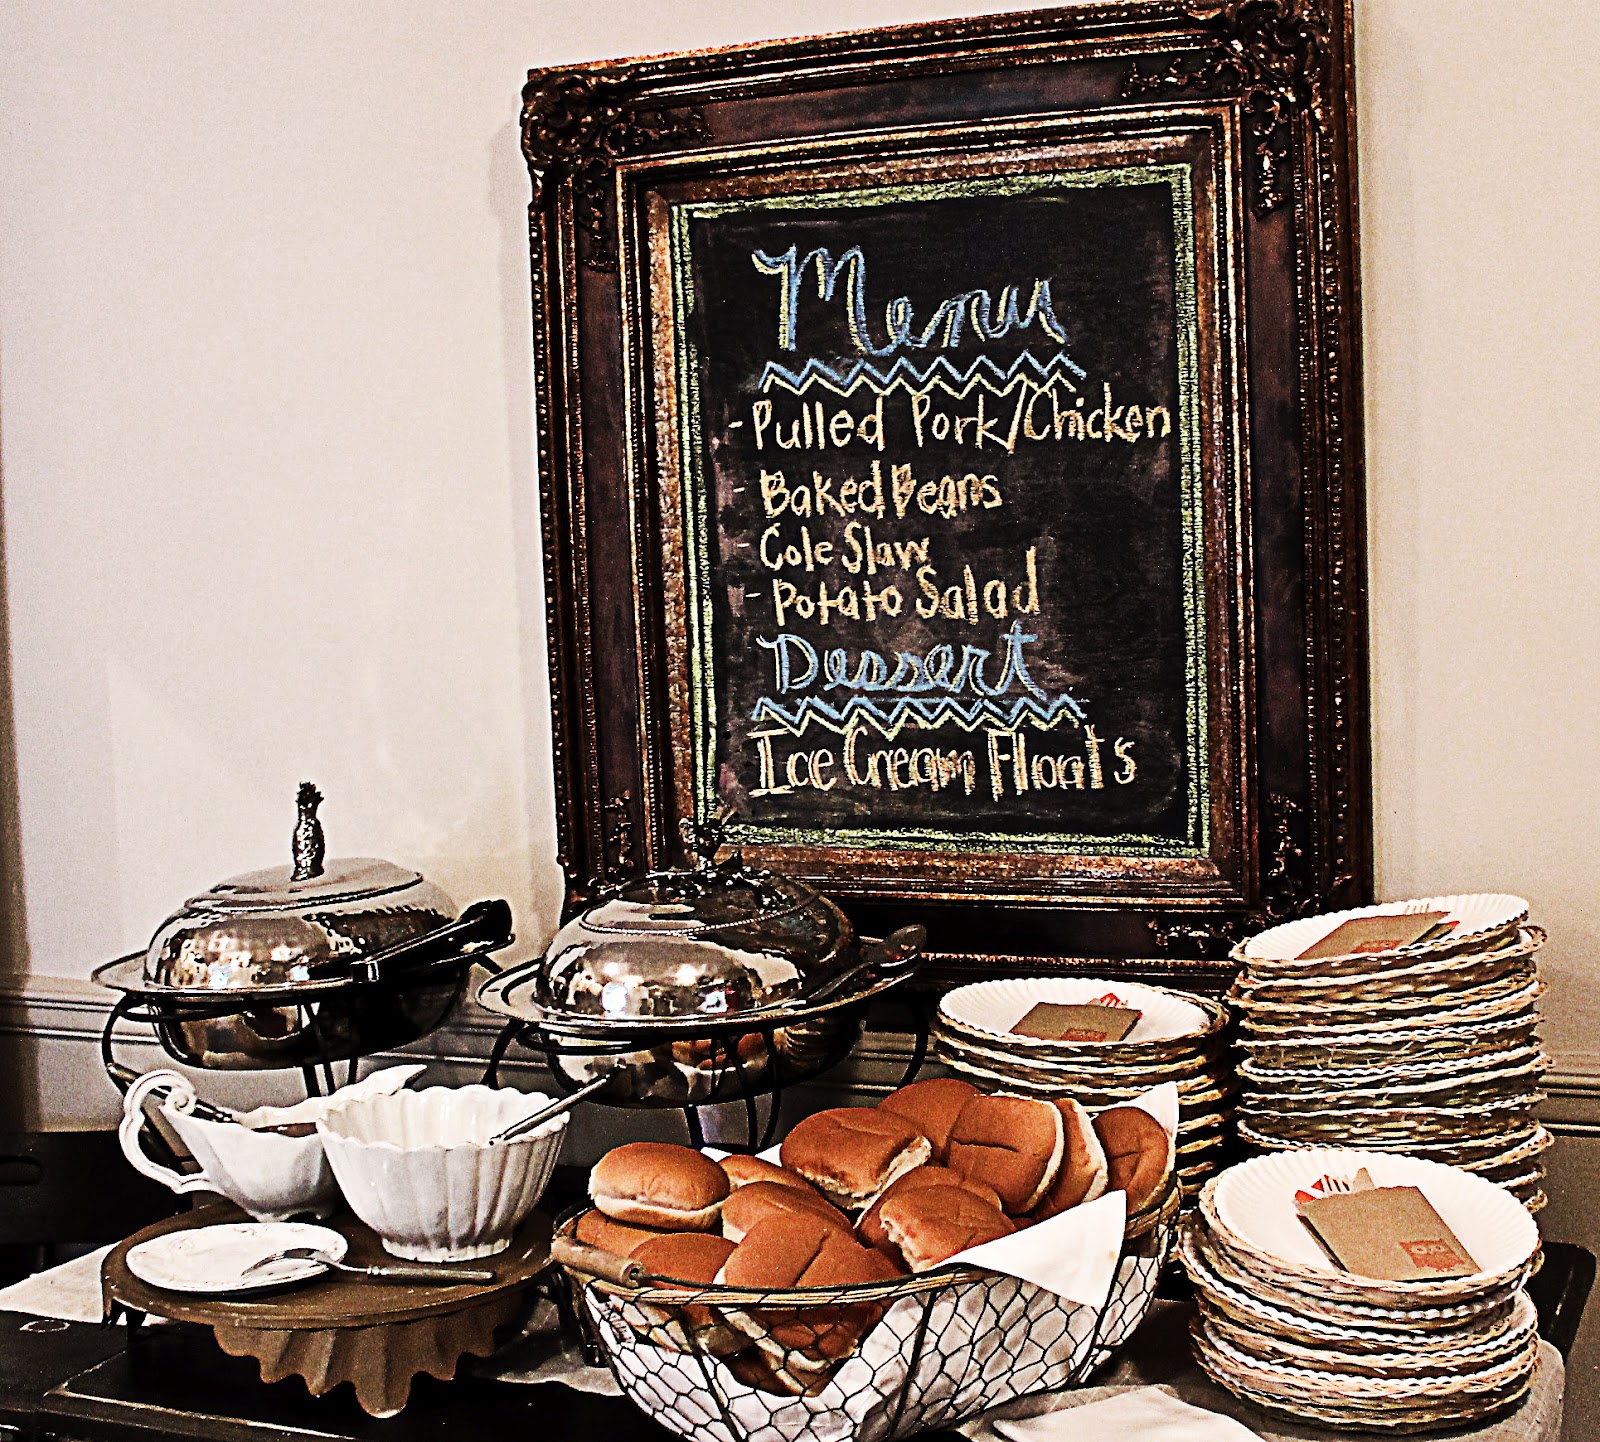 Menu
- Pulled Pork/Chicken
- Baked Beans
- Cole Slaw
- Potato Salad
Dessert
Ice Cream Floats